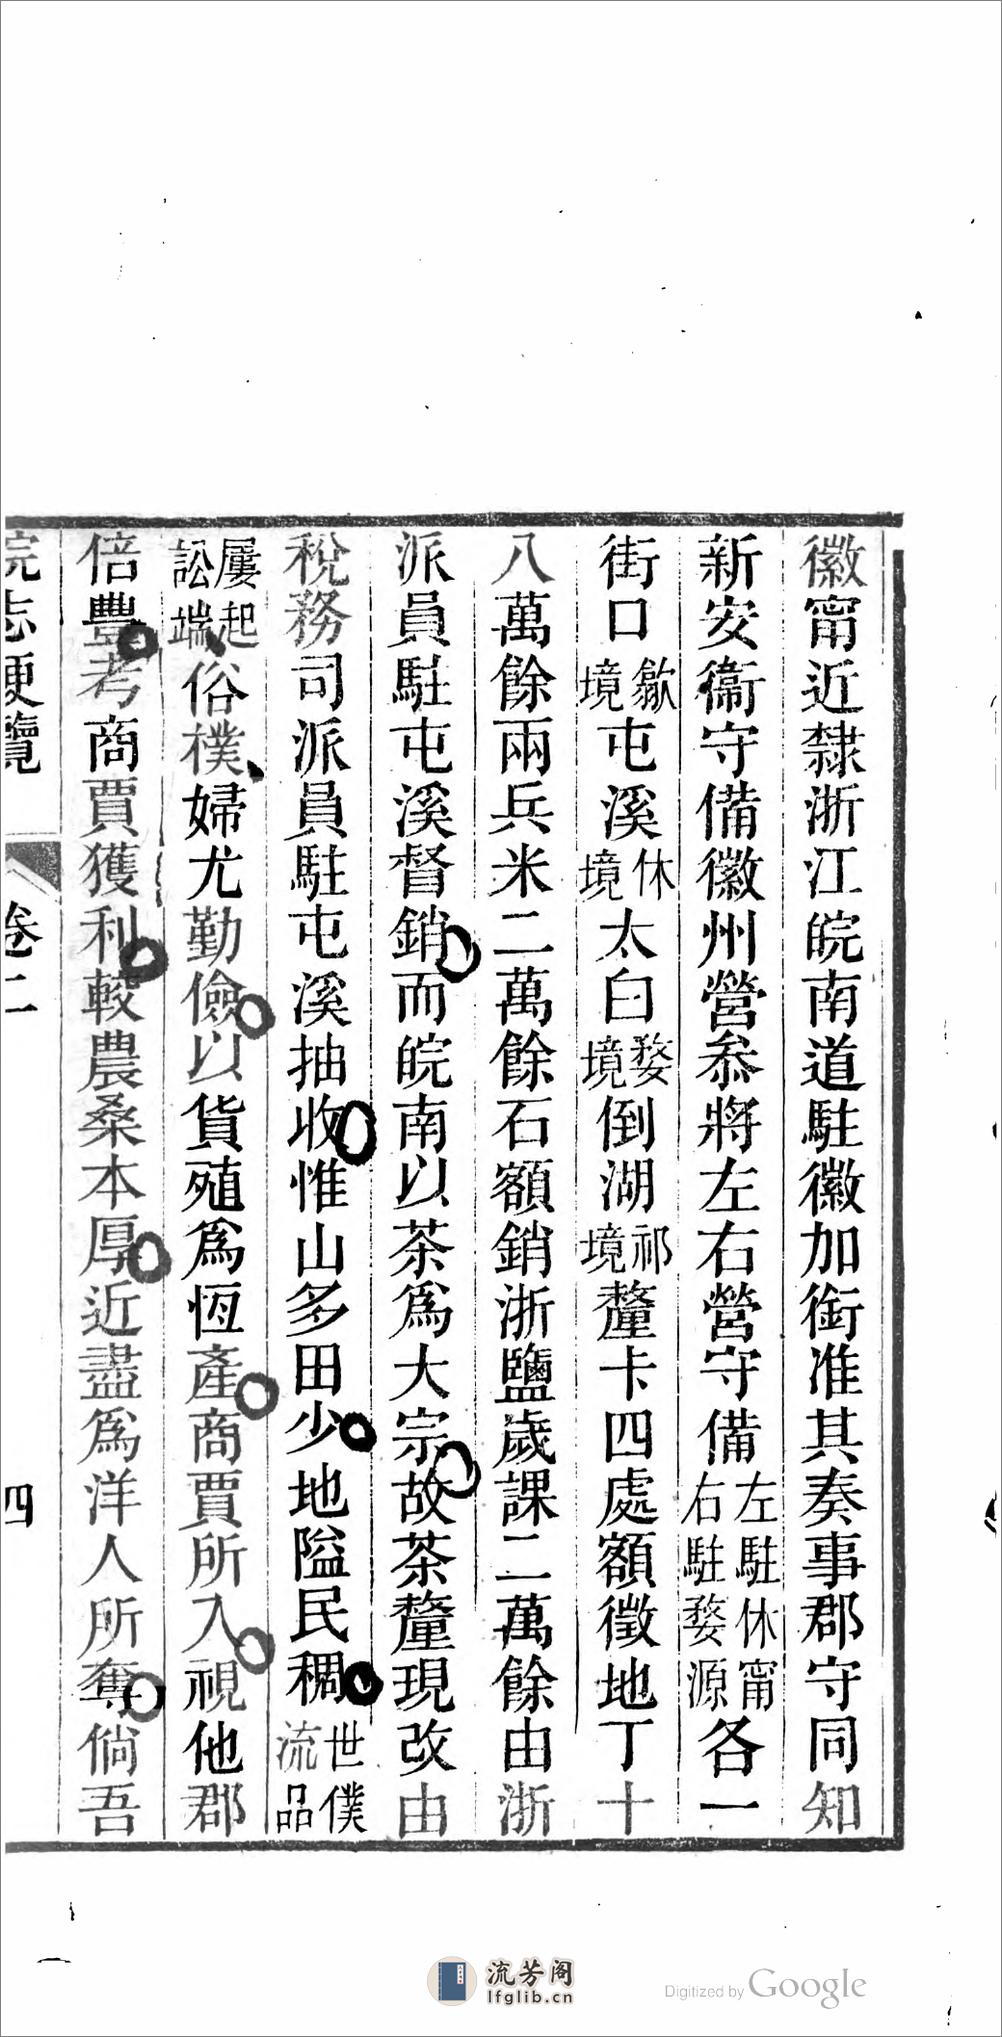 徽甯近隸浙江皖南道駐徽加銜准其奏事郡守同知
新安衞守備徽州營叅將左右營守備左駐休甯右駐婺源各一
街口歙境屯溪休境太白婺境倒湖祁境釐卡四處額徵地丁十
八萬餘兩兵米二萬餘石額銷浙鹽歲課二萬餘由浙
派員駐屯溪督銷而皖南以茶爲大宗故茶釐現改由
稅務司派員駐屯溪抽收惟山多田少地隘民稠世僕流品
屢起訟端俗樸婦尤勤儉以貨殖爲恆產商賈所入視他郡
倍豐考商賈獲利較農桑本厚近盡爲洋人所奪倘吾
皖志便覽 卷二 四
流芳阁
lfglib.cn
Digitized by Google